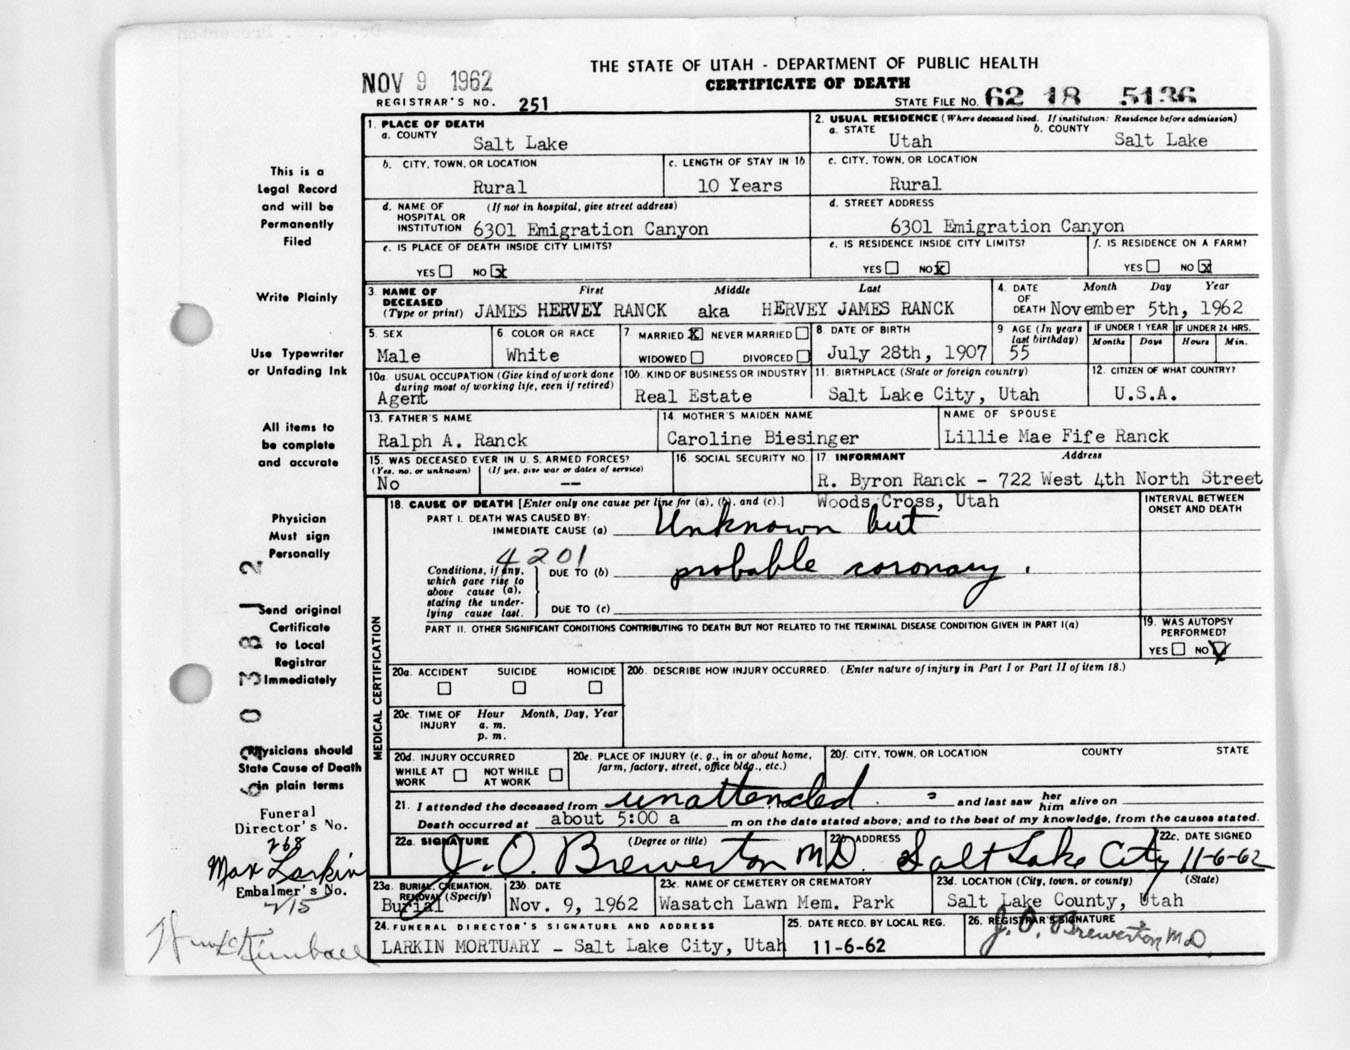 THE STATE OF UTAH - DEPARTMENT OF PUBLIC HEALTH
CERTIFICATE OF DEATH
NOV 9 1962
REGISTRAR'S NO. 251
STATE FILE NO. 62 18 5136
This is a
Legal Record
and will be
Permanently
Filed
Write Plainly
Use Typewriter
or Unfading Ink
All items to
be complete
and accurate
Physician
Must sign
Personally
Send original
Certificate
to Local
Registrar
Immediately
Physicians should
State Cause of Death
in plain terms
Funeral
Director's No.
268
Max Larkin
Embalmer's No.
215
1. PLACE OF DEATH
a. COUNTY
Salt Lake
2. USUAL RESIDENCE (Where deceased lived. If institution: Residence before admission)
a. STATE Utah b. COUNTY Salt Lake
b. CITY, TOWN, OR LOCATION
Rural
c. LENGTH OF STAY IN 1b
10 Years
c. CITY, TOWN, OR LOCATION
Rural
d. NAME OF (If not in hospital, give street address)
HOSPITAL OR
INSTITUTION 6301 Emigration Canyon
d. STREET ADDRESS
6301 Emigration Canyon
e. IS PLACE OF DEATH INSIDE CITY LIMITS?
YES NO x
e. IS RESIDENCE INSIDE CITY LIMITS?
YES NO x
f. IS RESIDENCE ON A FARM?
YES NO x
3. NAME OF DECEASED (Type or print) First Middle Last
JAMES HERVEY RANCK aka HERVEY JAMES RANCK
4. DATE OF DEATH Month Day Year
November 5th, 1962
5. SEX
Male
6 COLOR OR RACE
White
7 MARRIED x NEVER MARRIED
WIDOWED DIVORCED
8 DATE OF BIRTH
July 28th, 1907
9 AGE (In years last birthday)
55
IF UNDER 1 YEAR IF UNDER 24 HRS.
Months Days Hours Min.
10a. USUAL OCCUPATION (Give kind of work done
during most of working life, even if retired)
Agent
10b. KIND OF BUSINESS OR INDUSTRY
Real Estate
11. BIRTHPLACE (State or foreign country)
Salt Lake City, Utah
12. CITIZEN OF WHAT COUNTRY?
U.S.A.
13. FATHER'S NAME
Ralph A. Ranck
14. MOTHER'S MAIDEN NAME
Caroline Biesinger
NAME OF SPOUSE
Lillie Mae Fife Ranck
15. WAS DECEASED EVER IN U. S. ARMED FORCES?
(Yes, no, or unknown) (If yes, give war or dates of service)
No --
16. SOCIAL SECURITY NO.
17 INFORMANT Address
R. Byron Ranck - 722 West 4th North Street
Woods Cross, Utah
MEDICAL CERTIFICATION
18. CAUSE OF DEATH [Enter only one cause per line for (a), (b), and (c).]
INTERVAL BETWEEN
ONSET AND DEATH
PART I. DEATH WAS CAUSED BY:
IMMEDIATE CAUSE (a) Unknown but
4201
Conditions, if any,
which gave rise to
above cause (a),
stating the under-
lying cause last.
DUE TO (b) probable coronary.
DUE TO (c)
PART II. OTHER SIGNIFICANT CONDITIONS CONTRIBUTING TO DEATH BUT NOT RELATED TO THE TERMINAL DISEASE CONDITION GIVEN IN PART I(a)
19. WAS AUTOPSY
PERFORMED?
YES NO
20a. ACCIDENT SUICIDE HOMICIDE
20b. DESCRIBE HOW INJURY OCCURRED. (Enter nature of injury in Part I or Part II of item 18.)
20c. TIME OF INJURY Hour Month, Day, Year
a. m.
p. m.
20d. INJURY OCCURRED
WHILE AT WORK NOT WHILE AT WORK
20e. PLACE OF INJURY (e. g., in or about home,
farm, factory, street, office bldg., etc.)
20f. CITY, TOWN, OR LOCATION COUNTY STATE
21. I attended the deceased from unattended and last saw her him alive on
Death occurred at about 5:00 a m on the date stated above; and to the best of my knowledge, from the causes stated.
22a. SIGNATURE (Degree or title)
J. O. Brewerton M.D.
22b. ADDRESS
Salt Lake City
22c. DATE SIGNED
11-6-62
23a. BURIAL, CREMATION, REMOVAL (Specify)
Burial
23b. DATE
Nov. 9, 1962
23c. NAME OF CEMETERY OR CREMATORY
Wasatch Lawn Mem. Park
23d. LOCATION (City, town, or county) (State)
Salt Lake County, Utah
24. FUNERAL DIRECTOR'S SIGNATURE AND ADDRESS
LARKIN MORTUARY - Salt Lake City, Utah
25. DATE RECD. BY LOCAL REG.
11-6-62
26. REGISTRAR'S SIGNATURE
J. O. Brewerton M.D.